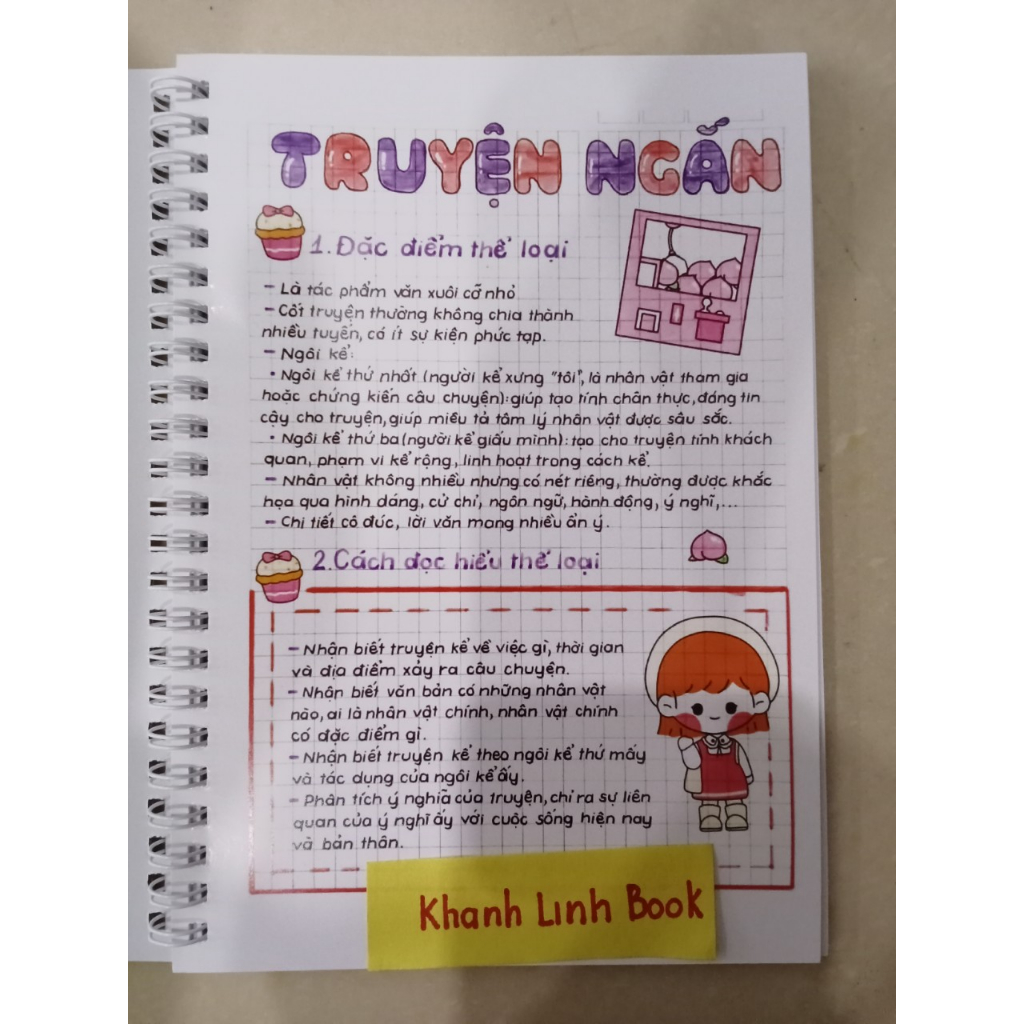 TRUYỆN NGẮN
1. Đặc điểm thể loại
- Là tác phẩm văn xuôi cỡ nhỏ
- Cốt truyện thường không chia thành
nhiều tuyến, có ít sự kiện phức tạp.
- Ngôi kể:
• Ngôi kể thứ nhất (người kể xưng "tôi", là nhân vật tham gia
hoặc chứng kiến câu chuyện): giúp tạo tính chân thực, đáng tin
cậy cho truyện, giúp miêu tả tâm lý nhân vật được sâu sắc.
• Ngôi kể thứ ba (người kể giấu mình): tạo cho truyện tính khách
quan, phạm vi kể rộng, linh hoạt trong cách kể.
- Nhân vật không nhiều nhưng có nét riêng, thường được khắc
họa qua hình dáng, cử chỉ, ngôn ngữ, hành động, ý nghĩ,...
- Chi tiết cô đúc, lời văn mang nhiều ẩn ý.
2. Cách đọc hiểu thể loại
- Nhận biết truyện kể về việc gì, thời gian
và địa điểm xảy ra câu chuyện.
- Nhận biết văn bản có những nhân vật
nào, ai là nhân vật chính, nhân vật chính
có đặc điểm gì.
- Nhận biết truyện kể theo ngôi kể thứ mấy
và tác dụng của ngôi kể ấy.
- Phân tích ý nghĩa của truyện, chỉ ra sự liên
quan của ý nghĩ ấy với cuộc sống hiện nay
và bản thân.
Khanh Linh Book